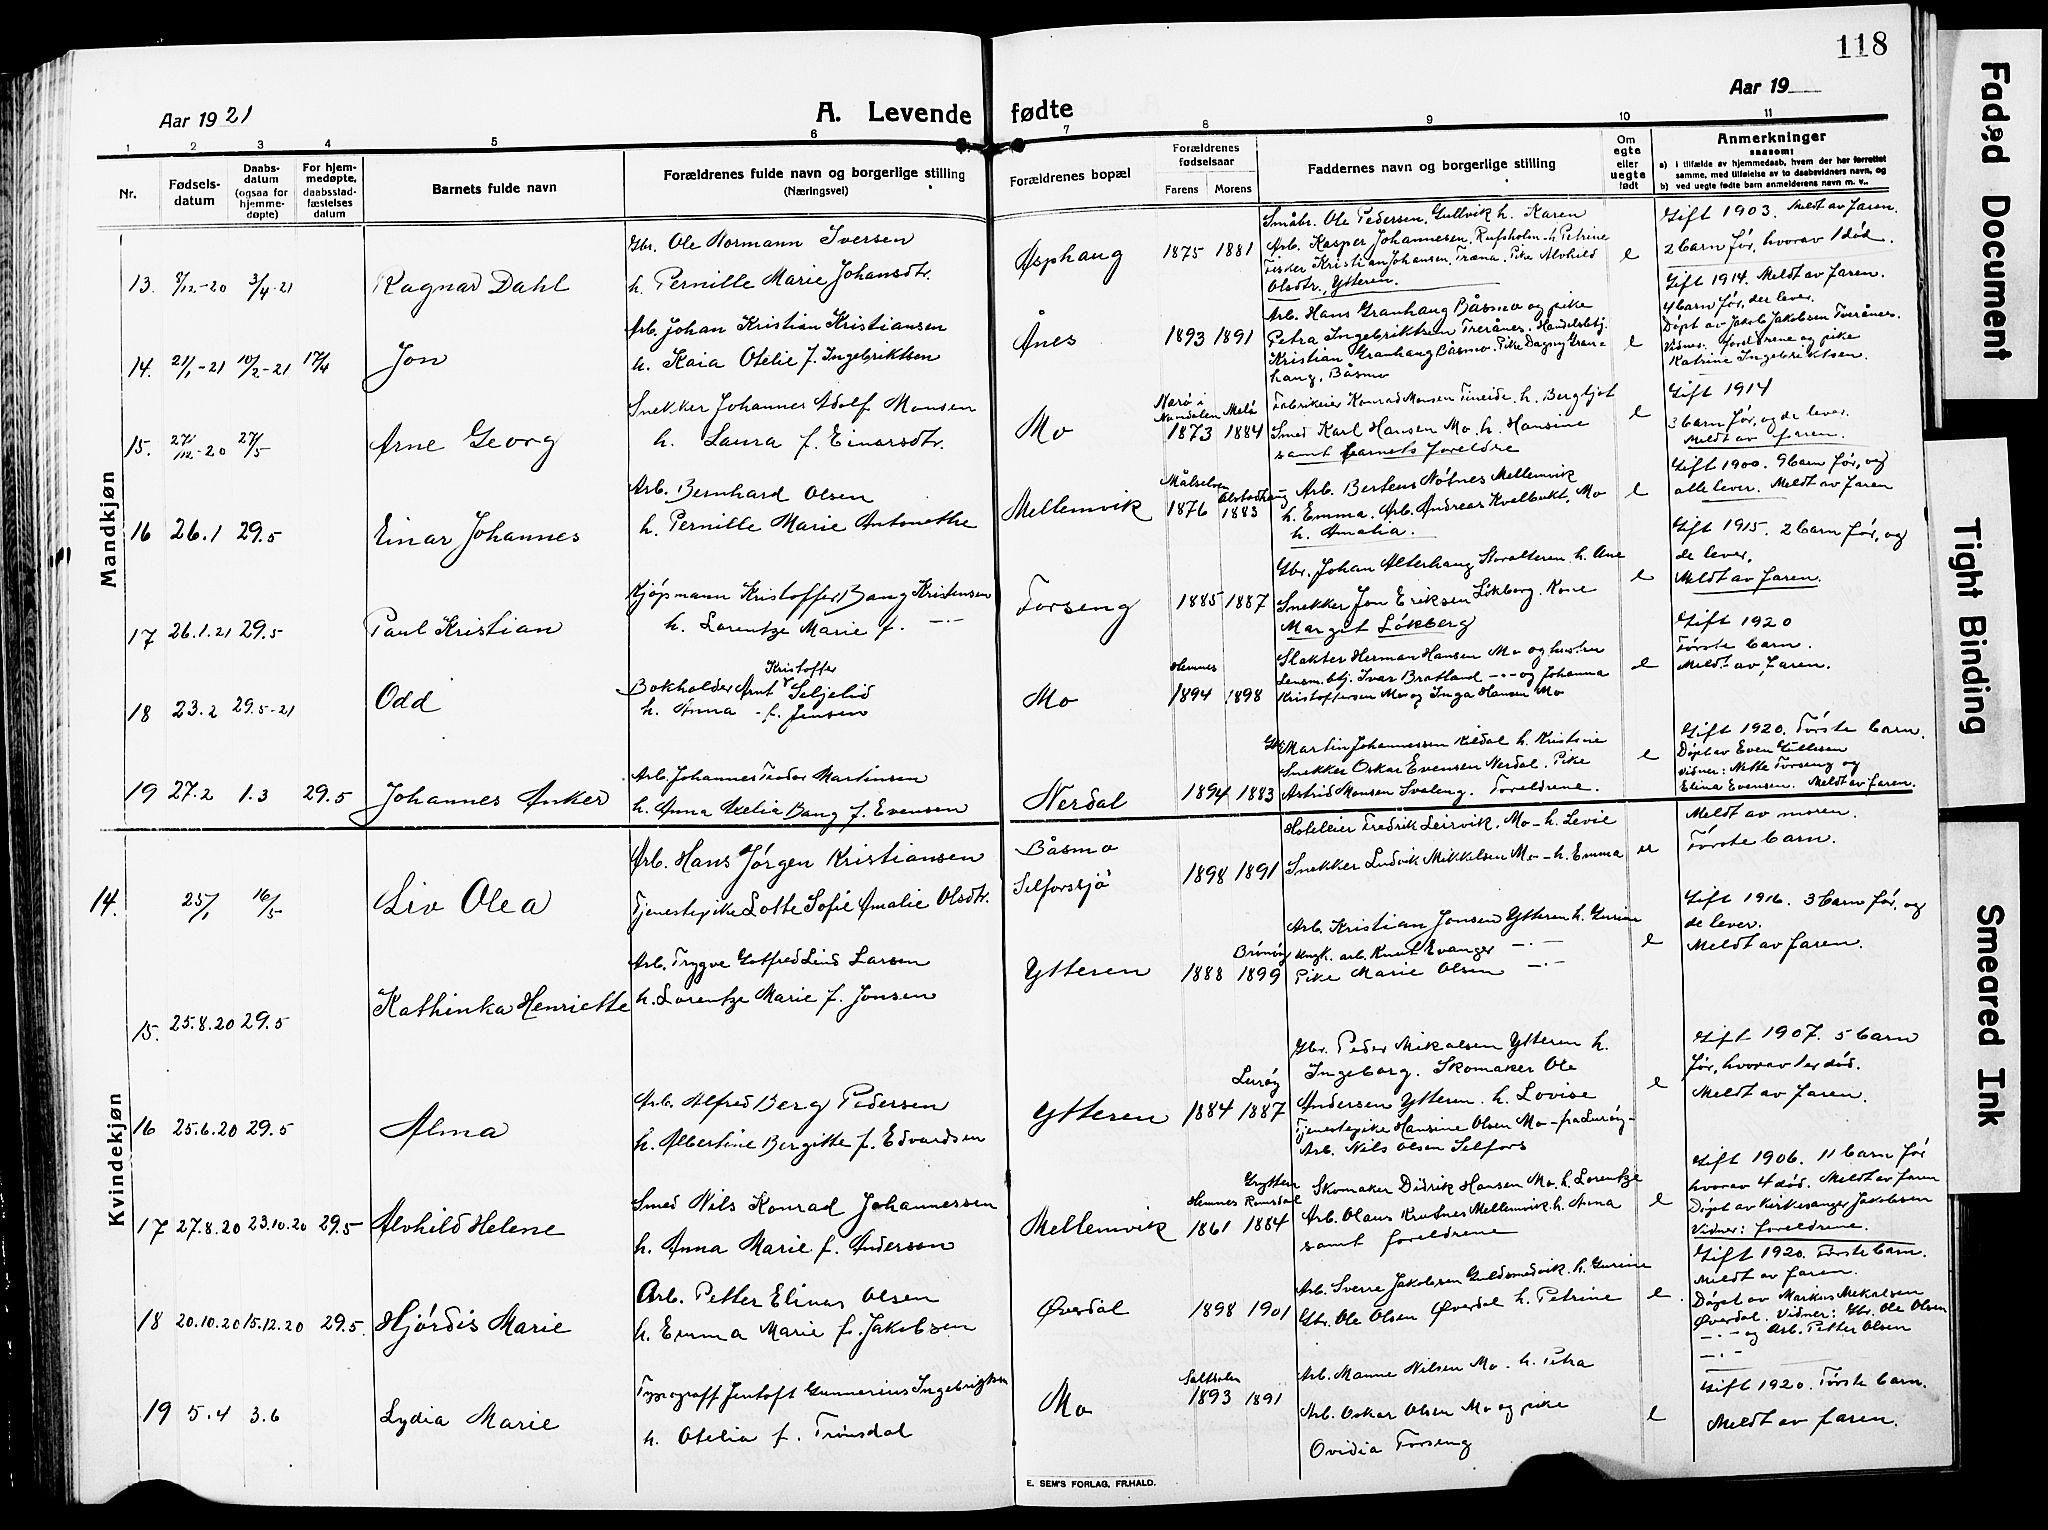 118
Aar 1921
A. Levende fødte
Aar 19
1 2 3 4 5 6 7 8 9 10 11
Nr.
Fødsels-
datum
Daabs-
datum
(ogsaa for
hjemme-
døpte)
For hjem-
medøpte,
daabsstad-
fæstelses
datum
Barnets fulde navn
Forældrenes fulde navn og borgerlige stilling
(Næringsvei)
Forældrenes bopæl
Forældrenes
fødselsaar
Farens Morens
Faddernes navn og borgerlige stilling
Om
egte
eller
uegte
født
Anmerkninger
saasom:
a) i tilfælde av hjemmedaab, hvem der har forrettet
samme, med tilføielse av to daabsvidners navn, og
b) ved uegte fødte barn anmelderens navn m. v..
Mandkjøn
13. 8/12-20 3/4-21 Ragnar Dahl
Gbr. Ole Normann Iversen
h. Pernille Marie Johansdtr.
Asphaug 1875 1881
Småbr. Ole Pedersen, Gullvik h. Karen
Arb. Kasper Johannesen, h. Petrine
Fisker Kristian Johansen, Træna. Pike Alvhild
Olsdtr., Ytteren.
e
Gift 1903. Meldt av faren.
2 barn før, hvorav 1 død.
14. 21/1-21 10/2-21 17/4 Jon
Arb. Johan Kristian Kristiansen
h. Kaia Otelie f. Ingebriktsen
Ånes 1893 1891
Arb. Hans Granhaug Båsmo og pike
Petra Ingebriktsen Trerånes. Handelsbtj.
Kristian Granhaug Båsmo. Pike Dagny Gran-
haug, Båsmo
e
Gift 1914. Meldt av faren.
4 barn før, der lever.
Døpt av Jakob Jakobsen Tverånes.
Vidner: foreldrene og pike
Katrine Ingebriktsen.
15. 27/12-20 27/5 Arne Georg
Snekker Johannes Adolf Monsen
h. Laura f. Einarsdtr.
Mo
Nærø i
Namdalen Melø
1873 1884
Fabrikeier Konrad Monsen Fineide, h. Bergljot
Smed Karl Hansen Mo h. Hansine
samt barnets foreldre
e
Gift 1914
3 barn før, og de lever.
Meldt av faren.
16 26.1 29.5 Einar Johannes
Arb. Bernhard Olsen
h. Pernille Marie Antonethe
Mellemvik
Målselven Alstadhaug
1876 1883
Arb. Bertens Nøtnes Mellemvik
h. Emma. Arb. Andreas Kvelbukt, Mo
h. Amalia.
e
Gift 1900. 9 barn før, og
alle lever. Meldt av faren
17 26.1.21 29.5 Paul Kristian
Kjøpmann Kristoffer Bang Kristensen
h. Lorentze Marie f. -"-
Forseng 1885 1887
Gbr. Johan Alterhaug Storalteren h. Ane
Snekker Jon Eriksen Løkberg. Kone
Margit Løkberg
e
Gift 1915. 2 barn før, og
de lever,
Meldt av faren.
18 23.2 29.5-21 Odd
Bokholder Arnt Kristoffer Seljelid
h. Anna f. Jensen
Mo
Hemnes
1894 1898
Slakter Herman Hansen Mo og hustru
Lensm.btj. Ivar Bratland -"- og Johanna
Kristoffersen Mo og Inga Hansen Mo
e
Gift 1920
Første barn.
Meldt av faren.
19 27.2 1.3 29.5 Johannes Anker
Arb. Johannes Teodor Martinsen
h. Anna Bang f. Evensen
Nerdal 1894 1883
Gbr. Martin Johannessen Kildal h. Kristine
Snekker Oskar Evensen Nerdal. Pike
Astrid Monsen Svaleng. Foreldrene.
e
Gift 1920. Første barn.
Døpt av Even Gullesen
Vidner: Nette Forseng og
Elina Evensen. Meldt av faren.
Kvindekjøn
14. 25/1 16/5 Liv Olea
Arb. Hans Jørgen Kristiansen
Tjenestepike Lotte Sofie Amalie Olsdtr.
Båsmo
Selforssjø 1898 1891
Hoteleier Fredrik Leirvik, Mo - h. Levie
Snekker Ludvik Mikkelsen Mo - h. Emma
u
Meldt av moren.
Første barn.
15. 25.8.20 29.5 Kathinka Henriette
Arb. Trygve Gotfred Lind Larsen
h. Lorentze Marie f. Jonsen
Ytteren
Brønøy
1888 1899
Arb. Kristian Jonsen Ytteren h. Gurine
Ungk. arb. Knut Evanger -"-
Pike Marie Olsen -"-
e
Gift 1916. 3 barn før, og
de lever.
Meldt av faren.
16 25.6.20 29.5 Alma
Arb. Alfred Berg Pedersen
h. Albertine Bergitte f. Edvardsen
Ytteren
Lurøy
1884 1887
Gbr. Peder Mikalsen Ytteren h.
Ingeborg. Skomaker Ole
Andersen Ytteren. h. Lovise
Tjenestepike Hansine Olsen Mo - fra Lurøy -
Arb. Nils Olsen Selfors
e
Gift 1907. 5 barn
før, hvorav 1 er død.
Meldt av faren.
17 27.8.20 23.10.20 29.5 Alvhild Helene
Smed Nils Konrad Johannessen
h. Anna Marie f. Andersen
Mellemvik
Hemnes Grytten Romsdal
1861 1884
Skomaker Didrik Hansen Mo, h. Lorentze
Arb. Olaus Krutnes Mellemvik h. Anna
samt foreldrene
e
Gift 1906. 11 barn før
hvorav 4 død. Meldt av faren
Døpt av Kirkesanger Jakobsen
Vidner: foreldrene.
18 20.10.20 15.12.20 29.5. Hjørdis Marie
Arb. Petter Elinas Olsen
h. Emma Marie f. Jakobsen
Øverdal 1898 1901
Arb. Sverre Jakobsen Guldsmedvik. h. Gurine
Gbr. Ole Olsen Øverdal h. Petrine
e.
Gift 1920. Første barn.
Meldt av faren.
Døpt av Markus Mikalsen
Øverdal. Vidner: Gbr. Ole Olsen
-"- og Arb. Petter Olsen
-"-
19 5.4 3.6 Lydia Marie
Typograff Jentoft Gunnerius Ingebrigtsen
h. Otelia f. Trønsdal
Mo
Saltdalen
1893 1891
Arb. Manne Nilsen Mo h. Petra
Arb. Oskar Olsen Mo og pike
Ovidia Forseng
e
Gift 1920. Første barn.
Meldt av faren.
E. SEM'S FORLAG, FR.HALD.
Faded Document
Tight Binding
Smeared Ink